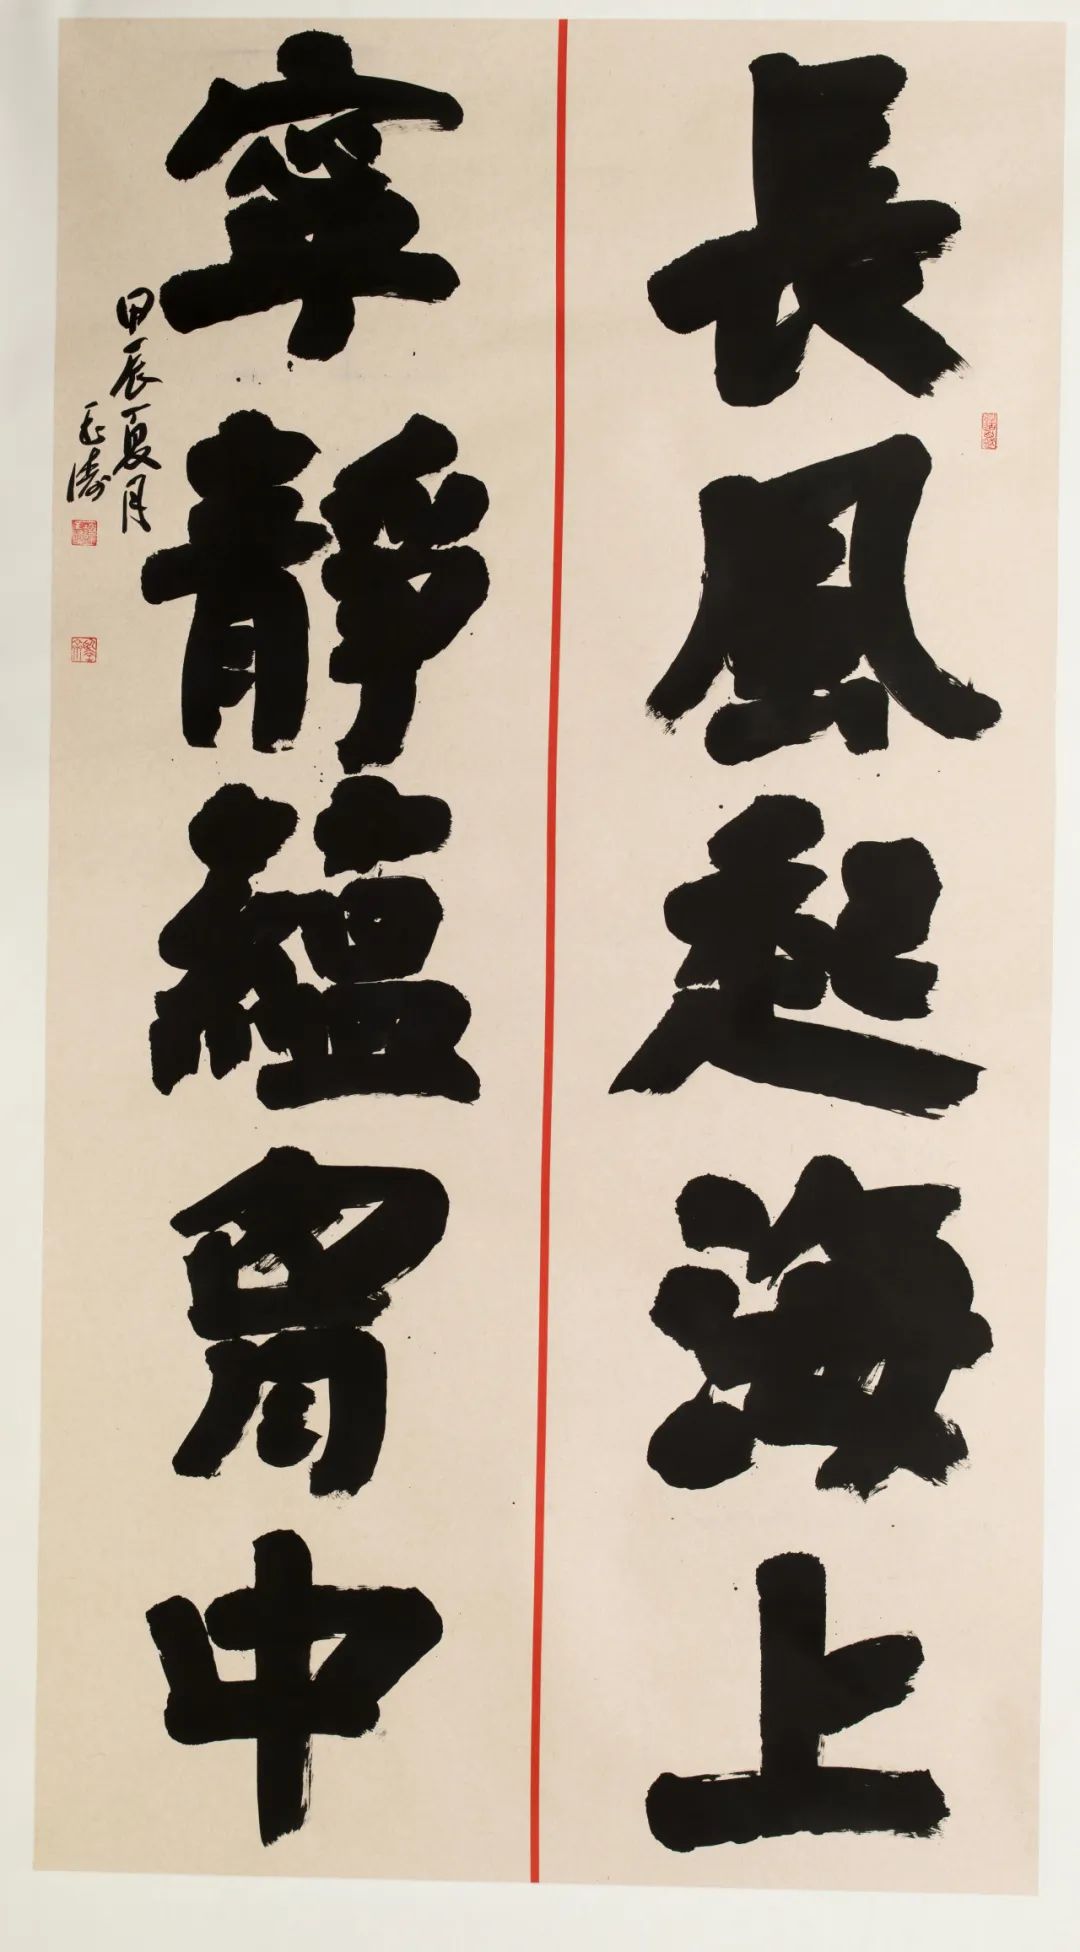 長風起海上
寧靜蘊胷中
甲辰夏月